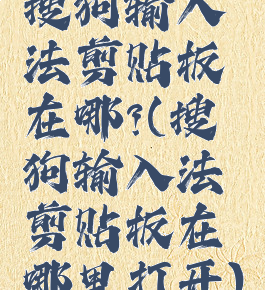 搜狗输入
法剪贴板
在哪?(搜
狗输入法
剪贴板在
哪里打开)